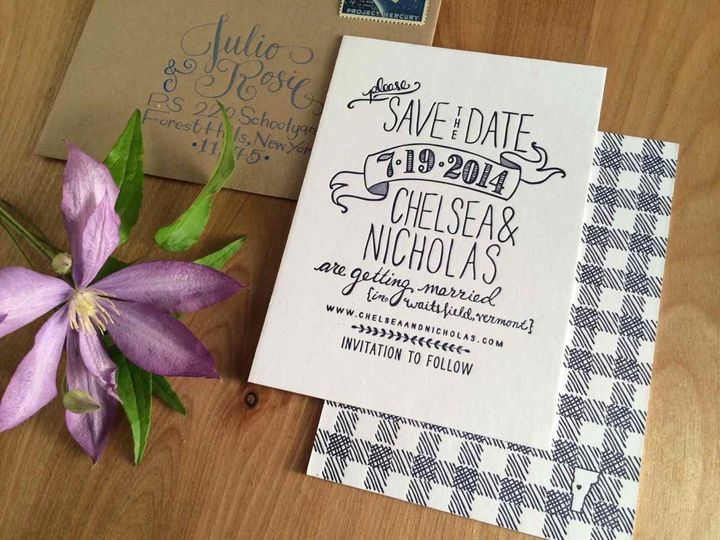 PROJECT MERCURY
Julio
& Rosie
P.S 220 Schoolyard
Forest Hills, New York
please
SAVE THE DATE
7·19·2014
CHELSEA &
NICHOLAS
are getting married
{in waitsfield, vermont}
WWW.CHELSEAANDNICHOLAS.COM
INVITATION TO FOLLOW